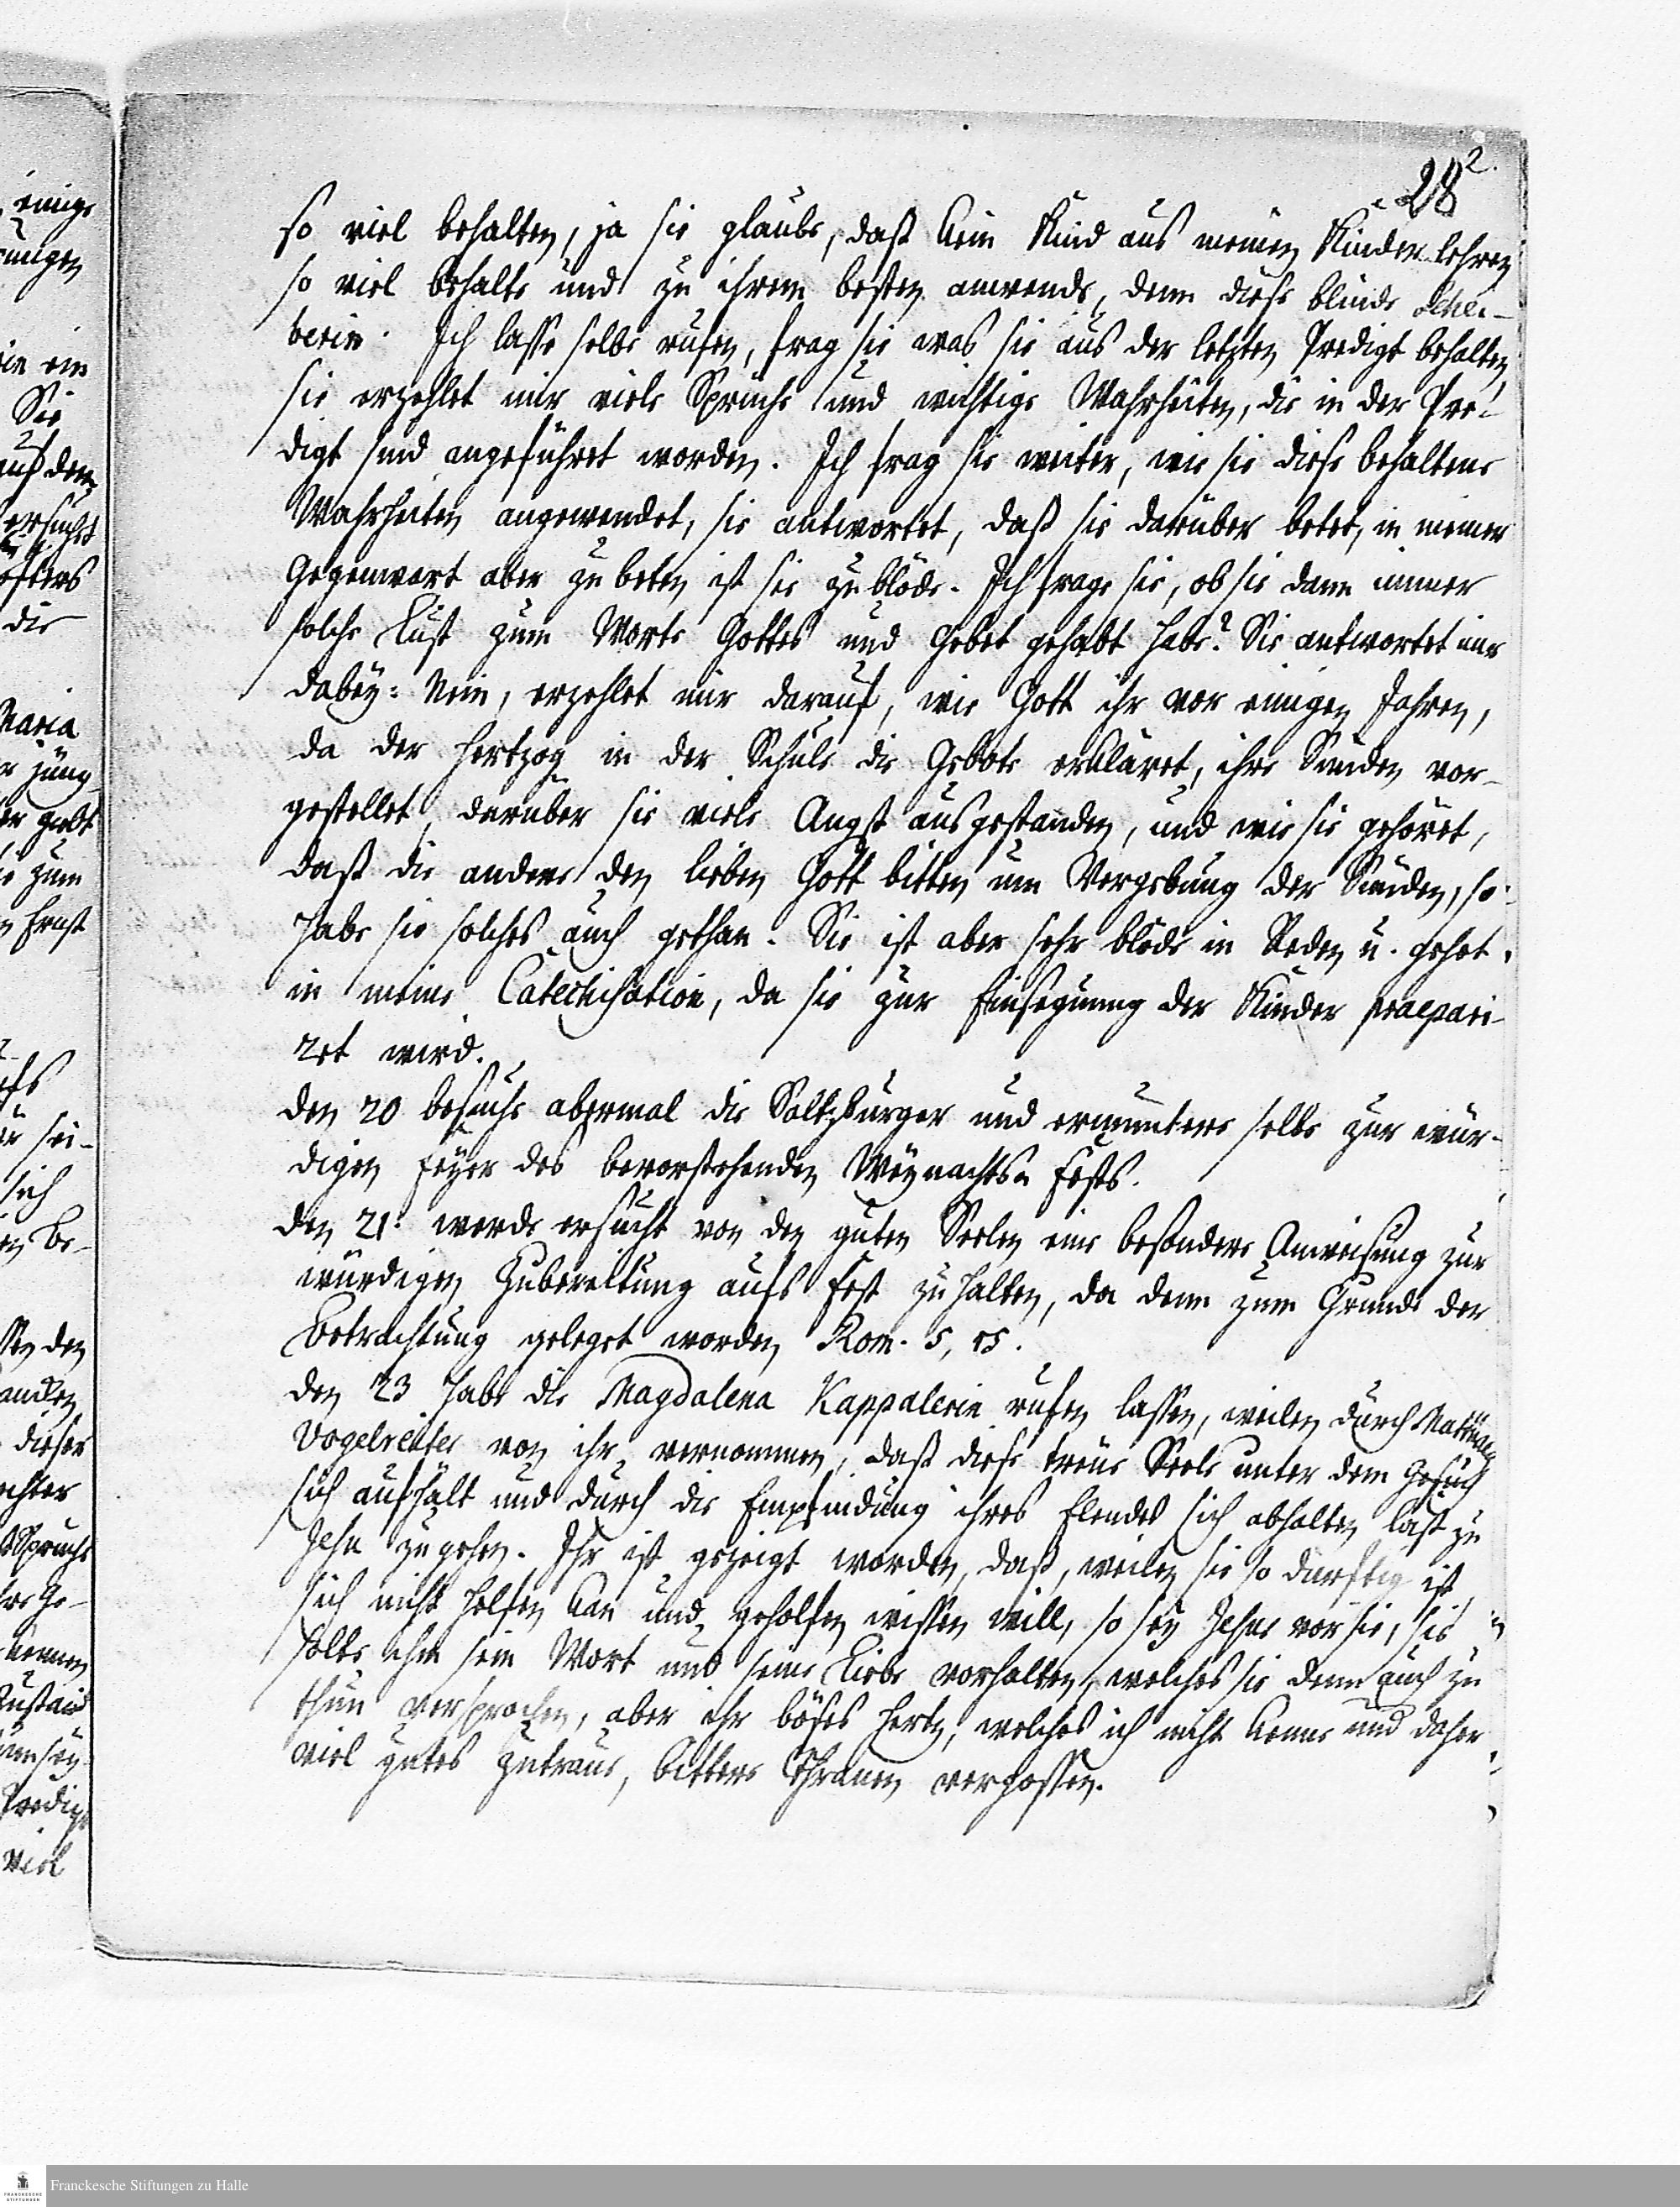 28 2.
so viel behalten, ja sie glaube, daß kein Kind aus meinen Kinderlehren
so viel behalte und zu ihrem besten anwende, denn diese blinde
berin. Ich lasse selbe rufen, frag sie was sie aus der letzten Predigt behalten,
sie erzehlet mir viele Sprüche und wichtige Wahrheiten, die in der Pre-
digt sind angeführet worden. Ich frag sie weiter, wie sie diese behaltene
Wahrheiten angewendet, sie antwortet, daß sie darüber betet, in meiner
Gegenwart aber zu beten ist sie zu blöde. Ich frage sie, ob sie dann immer
solche Lust zum Worte Gottes und Gebet gehabt habe? Sie antwortet mir
dabey: Nein, erzehlet mir darauf, wie Gott ihr vor einigen Jahren,
da der Hertzog in der Schule die Gebote erkläret, ihre Sünden vor-
gestellet, darüber sie viele Angst ausgestanden, und wie sie gehöret,
daß die andere den lieben Gott bitten um Vergebung der Sünden, so
habe sie solches auch gethan. Sie ist aber sehr blöde in Reden u. gehet
in meine Catechisation, da sie zur Einsegnung der Kinder praepari-
ret wird.
den 20 besuche abermal die Saltzburger und ermuntere selbe zur wür-
digen Feyer des bevorstehenden Weynachts Fests.
den 21. werde ersucht von den guten Seelen eine besondere Anweisung zur
würdigen Zubereitung aufs Fest zu halten, da denn zum Grunde der
Betrachtung geleget worden Rom. 5, 15.
den 23 habe die Magdalena Kappalerin rufen lassen, weilen durch
Vogelreiter von ihr vernommen, daß diese treue Seele unter dem Gesuch
sich aufhält und durch die Empfindung ihres Elendes sich abhalten läst zu
Jesu zu gehen. Ihr ist gezeigt worden, daß, weilen sie so durftig ist,
sich nicht helfen kan und geholfen wissen will, so sey Jesus vor sie, sie
solte ihm sein Wort und seine Liebe vorhalten, welches sie denn auch zu
thun versprochen, aber ihr böses Hertz, welches ich nicht kenne und daher
viel gutes zutraue, bittere Thränen vergossen.
einige
Sie
auf dem
öfters
die
Maria
jüng-
zum
Ernst
sei-
sich
Be-
den
dieser
Sprüche
Ge-
Zustand
Predigt
viel
Franckesche Stiftungen zu Halle